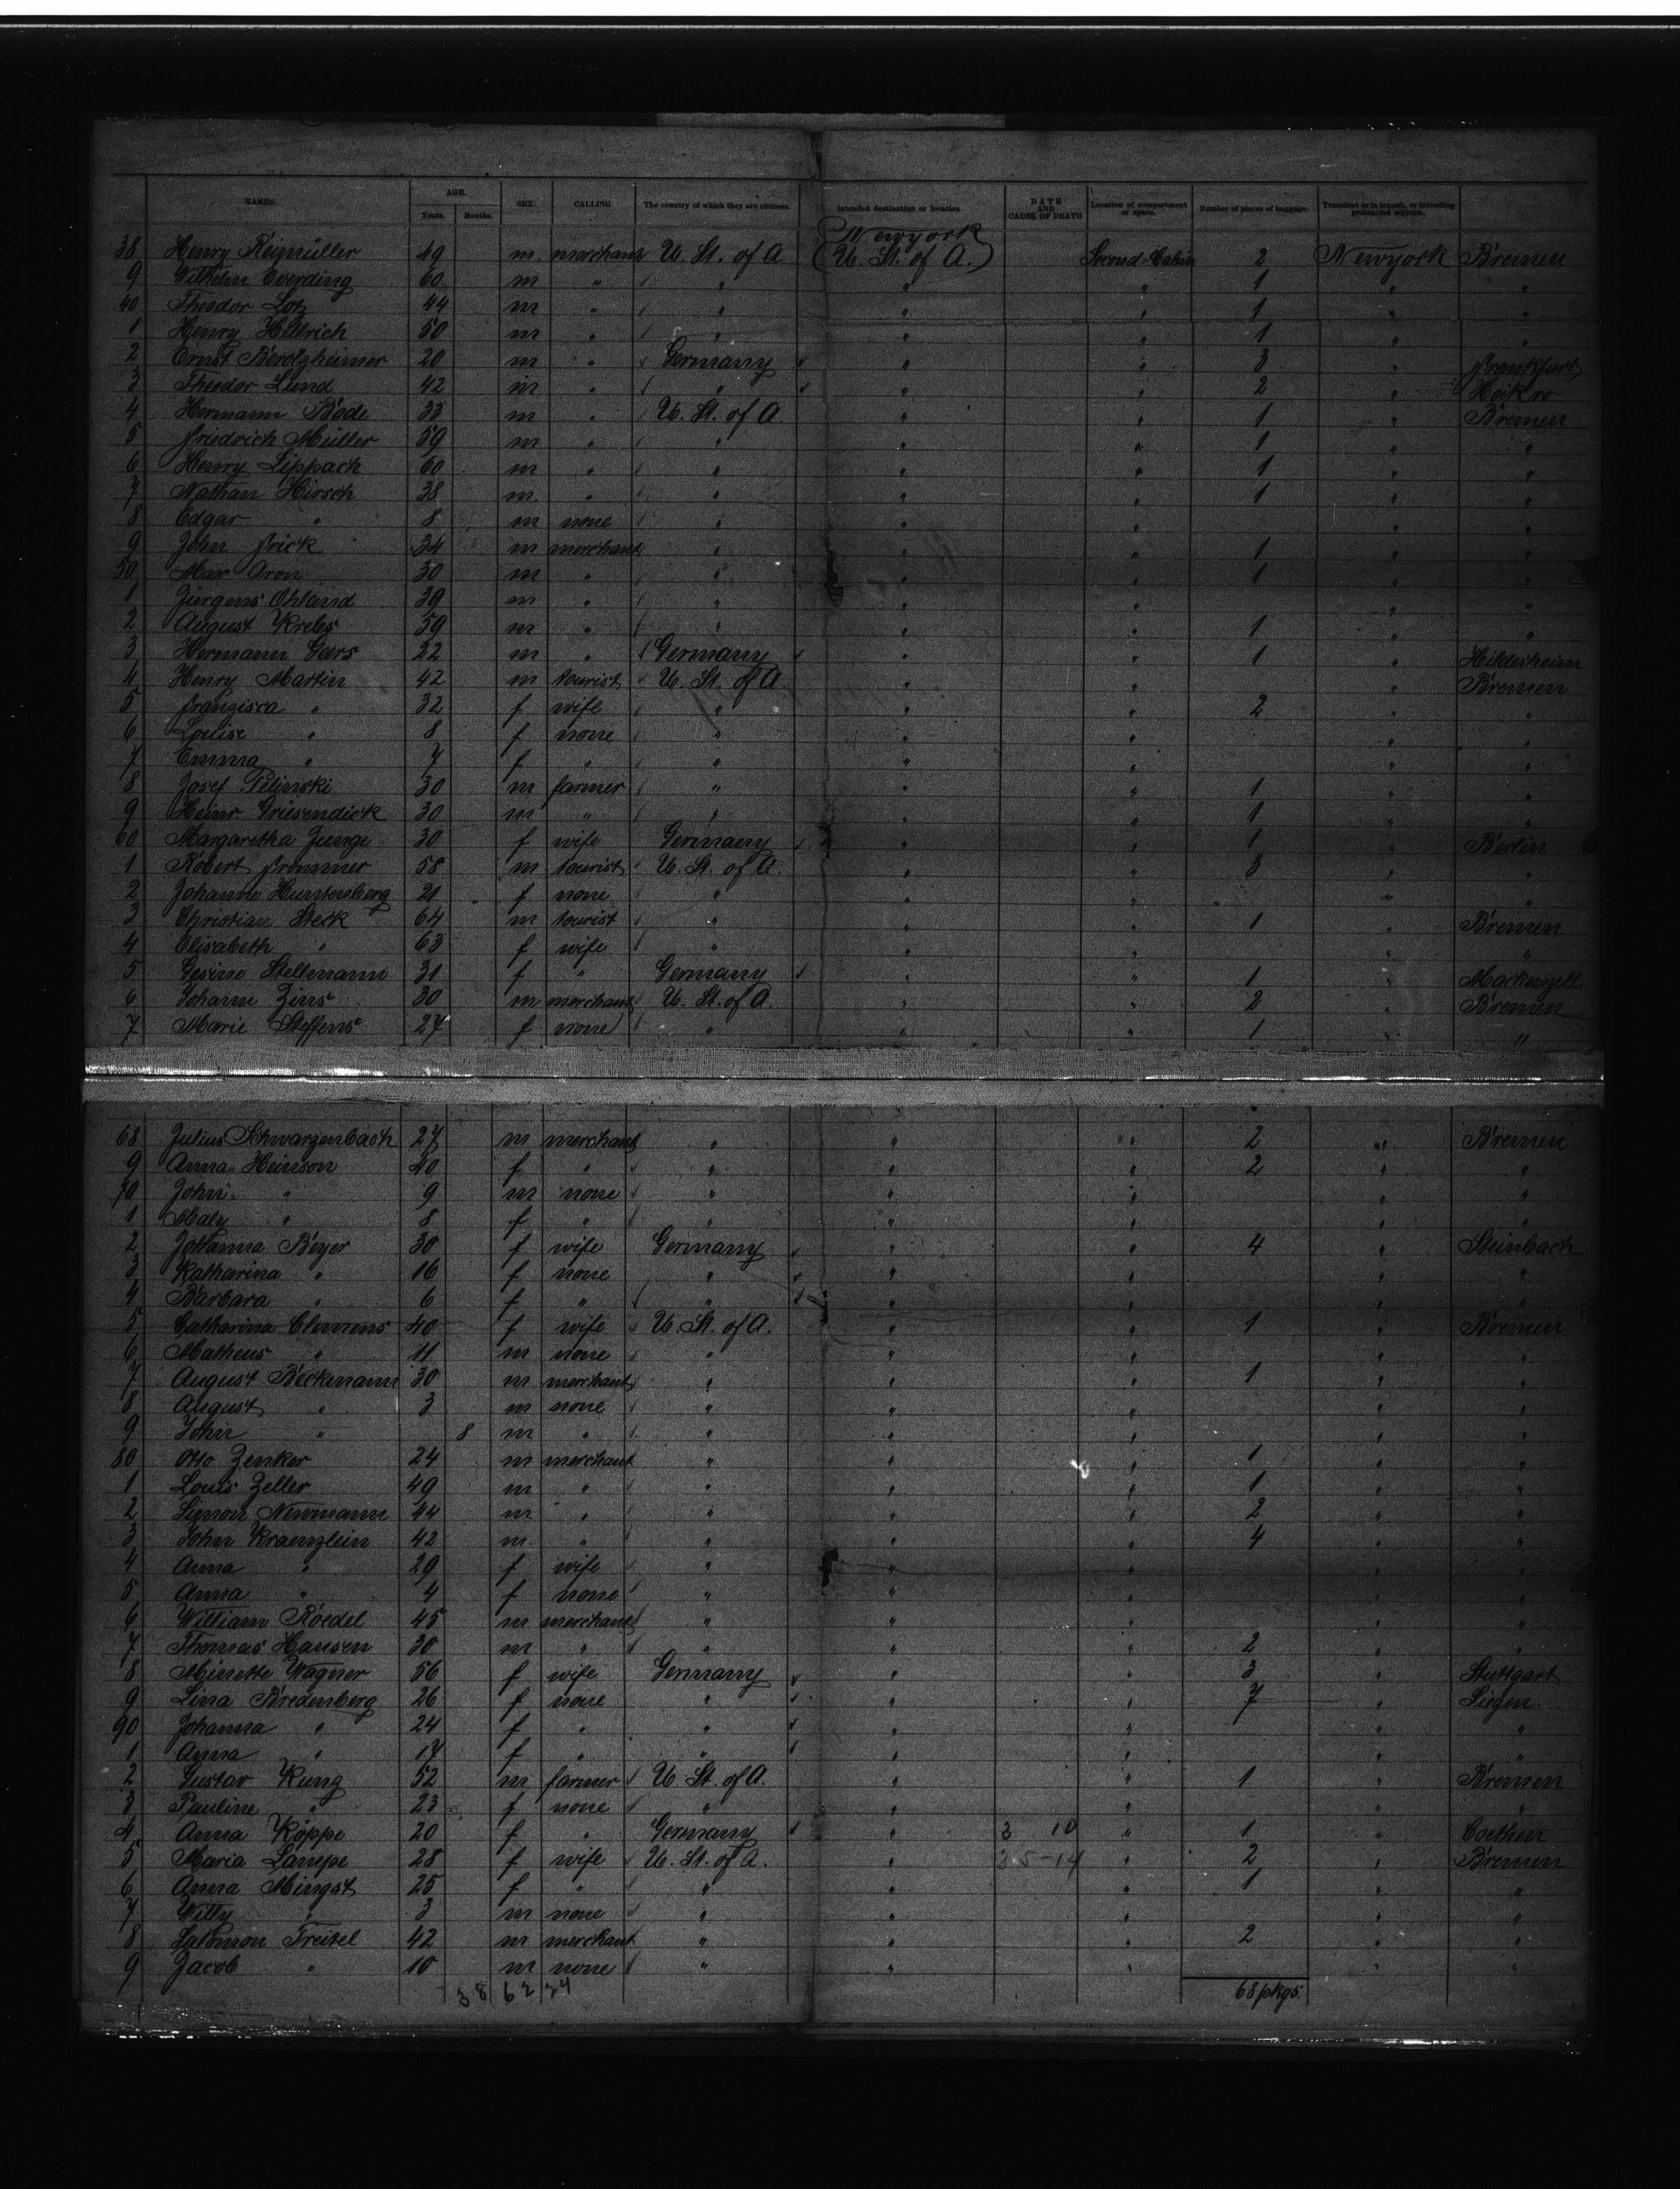 NAMES. AGE. Years. Months. SEX. CALLING. The country of which they are citizens. Intended destination or location. DATE AND CAUSE OF DEATH Location of compartment or space. Number of pieces of baggage. Transient or in transit, or intending protracted sojourn.
Newyork
38 Henry Reimüller 49 m. merchant U. St. of A (U. St. of A.) Second-Cabin 2 Newyork Bremen
9 Wilhelm Everding 60 m " " " " 1 " "
40 Theodor Lotz 44 m " " " " 1 " "
1 Henry Hillrich 50 m " " " " 1 " "
2 Ernst Berolzheimer 20 m " Germany " " 3 " Frankfurt
3 Theodor Lund 42 m " " " " 2 "
4 Hermann Bode 33 m " U. St. of A. " " 1 " Bremen
5 Friedrich Müller 59 m " " " " 1 " "
6 Henry Lippach 60 m " " " " 1 " "
7 Nathan Hirsch 38 m. " " " " 1 " "
8 Edgar " 8 m none " " " " "
9 John Frick 34 m merchant " " " 1 " "
50 Max Aron 30 m " " " " 1 " "
1 Jürgens Ohland 39 m " " " " " "
2 August Krebs 59 m " " " " 1 " "
3 Hermann Geers 22 m " Germany " " 1 " Hildesheim
4 Henry Martin 42 m tourist U. St. of A. " " " Bremen
5 Franzisca " 32 f wife " " " 2 " "
6 Louise " 8 f none " " " " "
7 Emma " 7 f " " " " " "
8 Josef Pilinski 30 m farmer " " " 1 " "
9 Heinr Griesendick 30 m " " " " 1 " "
60 Margaretha Junge 30 f wife Germany " " 1 " Berlin
1 Robert Frommer 58 m tourist U. St. of A. " " 3 " "
2 Johanne 21 f none " " " " "
3 Christian Steck 64 m tourist " " " 1 " Bremen
4 Elisabeth " 63 f wife " " " " "
5 Gesine Stellmann 31 f " Germany " " 1 " Mackenzell
6 Johann Zins 30 m merchant U. St. of A. " " 2 " Bremen
7 Marie Steffens 27 f none " " " 1 " "
68 Julius Schwarzenbach 27 m merchant " " " 2 " Bremen
9 Anna Heinson 40 f " " " " 2 " "
70 John " 9 m none " " " " "
1 Maly " 8 f " " " " " "
2 Johanna Beyer 30 f wife Germany " " 4 " Steinbach
3 Katharina " 16 f none " " " " "
4 Barbara " 6 f " " " " " "
5 Catharina Clemens 40 f wife U. St. of A. " " 1 " Bremen
6 Matheus " 11 m none " " " " "
7 August Beckmann 30 m merchant " " " 1 " "
8 August " 3 m none " " " " "
9 John " 8 m " " " " " "
80 Otto Zenker 24 m merchant " " " 1 " "
1 Louis Zeller 49 m " " " " 1 " "
2 Simon Newmann 44 m " " " " 2 " "
3 John Kraenzlein 42 m. " " " " 4 " "
4 Anna " 29 f wife " " " " "
5 Anna " 4 f none " " " " "
6 William Roedel 45 m merchant " " " " "
7 Thomas Hansen 30 m " " " " 2 " "
8 Minette Wagner 56 f wife Germany " " 3 " Stuttgart
9 Lina Bredenberg 26 f none " " " 7 " Siegen.
90 Johanna " 24 f " " " " " "
1 Anna " 17 f " " " " " "
2 Gustav Kung 52 m farmer U. St. of A. " " 1 " Bremen
3 Pauline " 23 f none " " " " "
4 Anna Köppe 20 f " Germany " 3 10 " 1 " Coethen
5 Maria Lampe 28 f wife U. St. of A. " 35-14 " 2 " Bremen
6 Anna Mingst 25 f " " " " 1 " "
7 Willy " 3 m none " " " " "
8 Salomon Treitel 42 m merchant " " " 2 " "
9 Jacob " 10 m none " " " " "
38 62 34 68 pkgs.